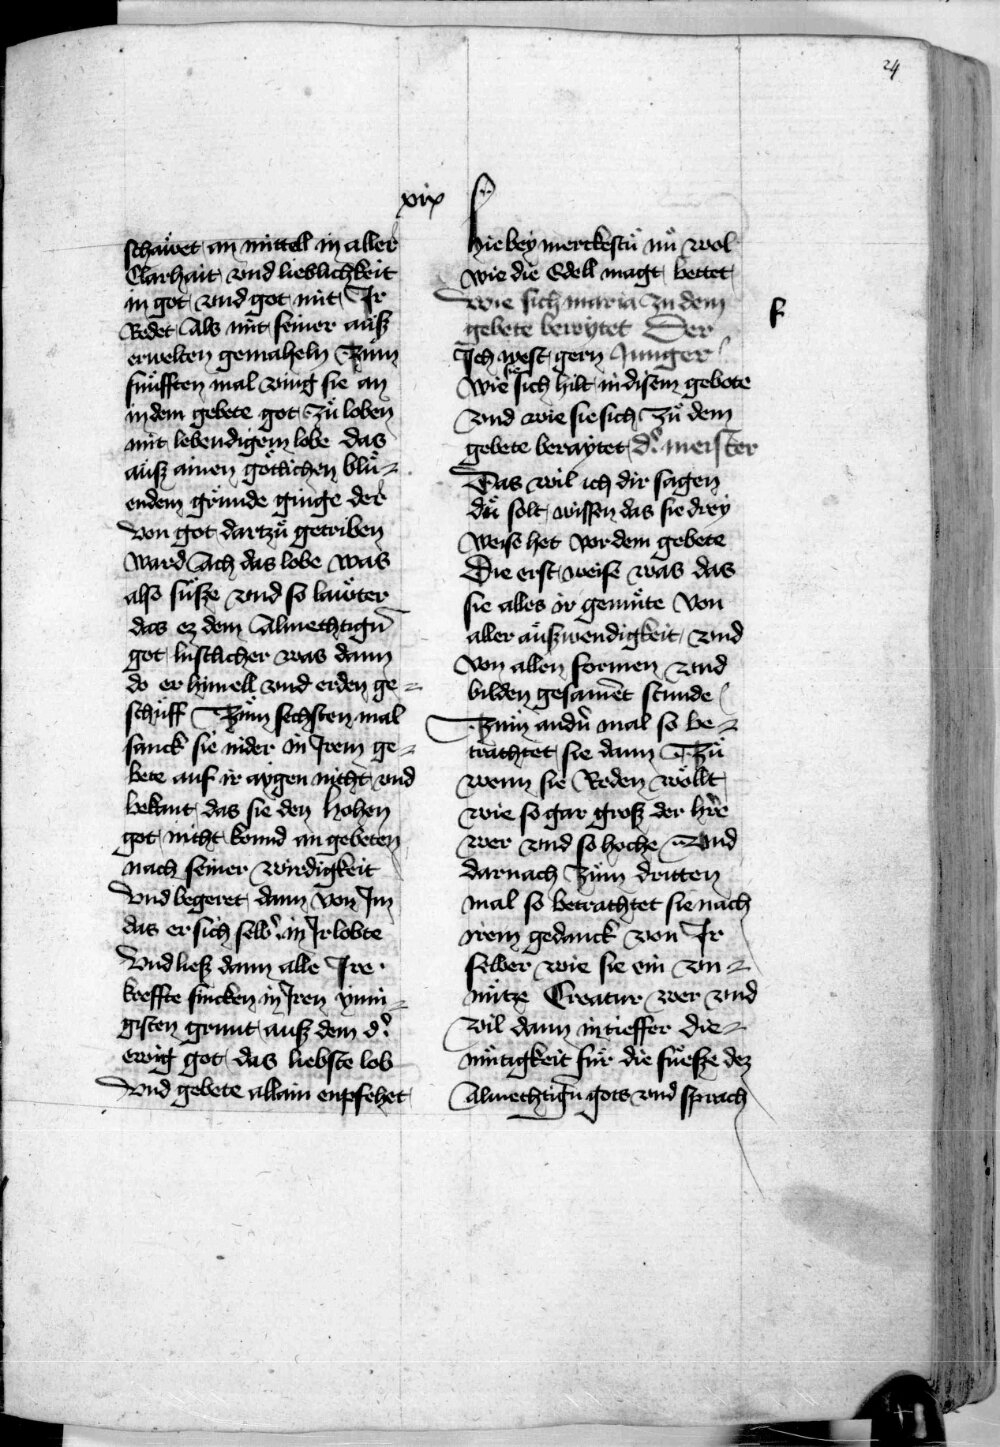 24
xix
schawet an mittell in aller
Clarhait vnd lieblichkeit
in got vnd got mit Ir
Redet Als mit seiner auß
erwelten gemaheln Zum
fnͤfften mal ving sie an
in dem gebete got Zů loben
mit lebendigem lobe das
auß ainen gotlichen blů⸗
endem grůnde ginge der
von got dartzů getriben
ward Ach das lobe was
also sůsze vnd so lawter
das ez dem Almechtigñ
got lustlicher was dann
do er himell vnd erden ge⸗
schůff Zům sechsten mal
sanck sie nider in Irem ge⸗
bete auf ir aygen nicht vnd
bekant das sie den hohen
got nicht konnd an gebeten
nach seiner wirdigkeit
Vnd begeret dann von Im
das er sich selb᾽ in Ir lobte
Vnd ließ dann alle Ire
kreffte sincken in Iren ynni⸗
gisten grunt auß dem d᾽
ewig got das liebste lob
Vnd gebete allain enpfehet
hie bey merckestů nů wol
wie die Edell magt bettet
wie sich maria zu dem
gebete bereytet Der
Ich west gern Junger
wie sie sich hilt in disem gebote
vnd wie sie sich Zů dem
gebete beraytet d᾽ meister
Das wil ich dir sagen
dů solt wissen das sie drey
weise het vor dem gebete
Die erst weise was das
sie alles ir gemůte von
aller außwendigkeit vnd
von allen formen vnd
bilden gesament stunde
Zum andñ mal so be⸗
trachtet sie dann Zů
wenn sie Reden wollt
wie so gar groß der hr̃e
wer vnd so hoche Vnd
darnach Zům dritten
mal so betrachtet sie nach
irem gedanck von Ir
selber wie sie ein vn⸗
nůtze Creatur wer vnd
vil dann in tieffer die⸗
můtigkeit fůr die fuͤsze dez
Almechtigñ gots vnd sprach
k